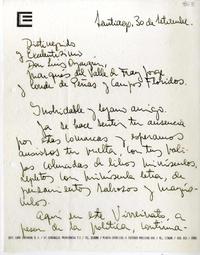 Santiago, 30 de Setiembre.
Distinguido
y Excelentísimo
Don Luis Oyarzún,
Marqués del Valle de Fray Jorge
y Conde de Peñas y Campos Floridos.
Inolvidable y lejano amigo.
Ya se hace sentir tu ausencia
por estas comarcas y esperamos
ansiosos tu vuelta, con tus
colmadas de libros minúsculos
repletos con minúscula letra, de
pensamientos hermosos y
Aquí en este Virreinato, a
pesar de la política, continua-